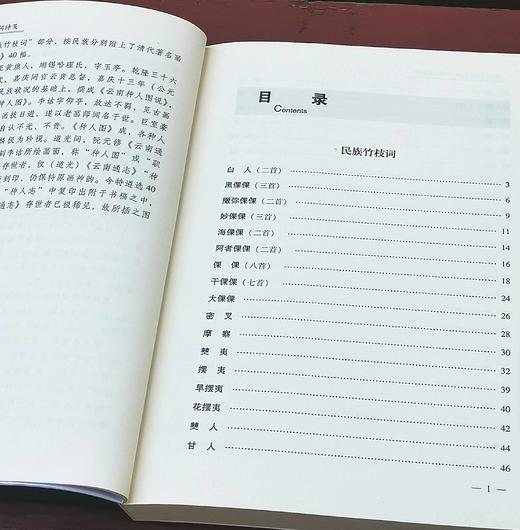 族竹枝词”部分，按民族分别附上了清代著名画
》40幅。
正黄旗人，瑚锡哈理氏，字玉亭。乾隆三十六
，嘉庆间官云贵总督，嘉庆十三年（公元
民族状况的基础上，撰成《云南种人图说》，
人图》。李诂字仰亭，放达不羁，见古画
画技日进，遂以老画师闻名于世。巨室豪
自认不光、不贵。《种人图》成，各种人
极为珍视。道光间，阮元修《云南通
刻李诂所绘画面，称“种人图”或“职
存世者，仅（道光）《云南通志》“种
刻印，仍保持原画神韵。今特遴选40
“种人志”中复印出附于书稿之中，
通志》存世者已极稀见，故所插之图
目 录
Contents
民族竹枝词
白 人（二首） 3
黑倮倮（三首） 6
撒弥倮倮（二首） 9
妙倮倮（三首） 11
海倮倮（二首） 14
阿者倮倮（二首） 16
倮 倮（八首） 18
干倮倮（七首） 24
大倮倮 26
密 叉 28
摩 察 30
僰 夷 32
摆 夷 35
旱摆夷 39
花摆夷 42
僰 人 44
甘 人 46
— 1 —